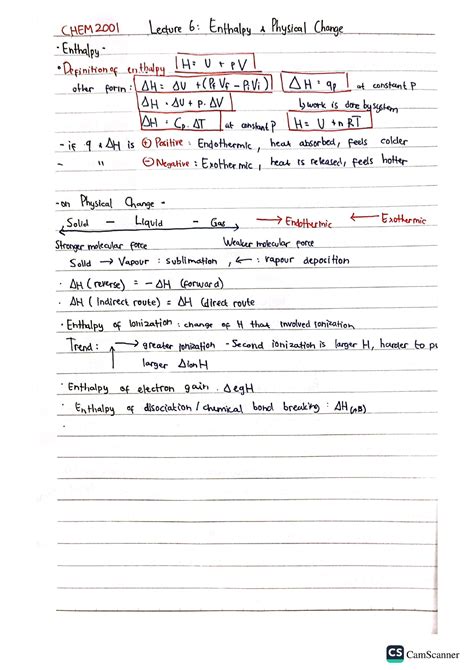 CHEM2001 Lecture 6: Enthalpy & Physical Change
- Enthalpy -
• Definition of enthalpy H = U + pV
other form: ΔH = ΔU + (PfVf - PiVi) ΔH = qp at constant P
ΔH = ΔU + p.ΔV ↳ work is done by system
ΔH = Cp.ΔT at constant P H = U + nRT
- if q & ΔH is ⊕ Positive: Endothermic, heat absorbed, feels colder
" ⊖ Negative: Exothermic, heat is released, feels hotter
- on Physical Change -
Solid - Liquid - Gas → Endothermic ← Exothermic
Stronger molecular force Weaker molecular force
Solid → Vapour: sublimation, ←: vapour deposition
• ΔH (reverse) = - ΔH (forward)
• ΔH (indirect route) = ΔH (direct route
• Enthalpy of Ionization: change of H that involved ionization
Trend: ↑→ greater ionization - Second ionization is larger H, harder to pu
larger ΔionH
• Enthalpy of electron gain: ΔegH
• Enthalpy of disociation / chemical bond breaking: ΔH(AB)
CS CamScanner